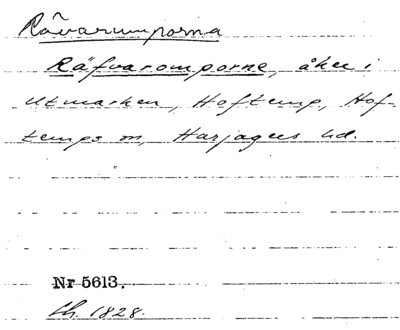 Rävarumporna
Räfvaromporne, åker i
Utmarken, Hoftemp, Hof-
temps m, Harjagers hd.
Nr 5613.
Ch. 1828.